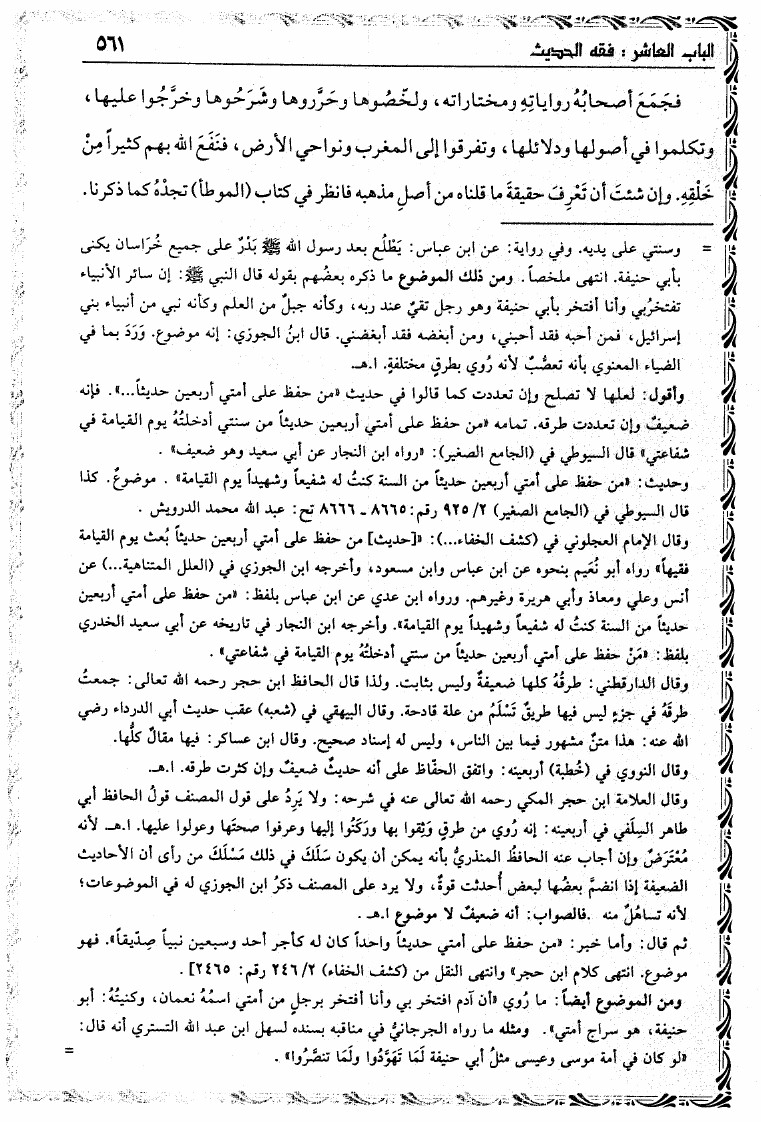 الباب العاشر : فقه الحديث
٥٦١
فجَمَعَ أصحابُهُ رواياتِهِ ومختاراته، ولخّصُوها وحَرَّروها وشَرَحُوها وخرَّجُوا عليها،
وتكلموا في أصولها ودلائلها، وتفرقوا إلى المغرب ونواحي الأرض، فنَفَعَ الله بهم كثيراً مِنْ
خَلْقِهِ. وإن شئتَ أن تَعْرِفَ حقيقةَ ما قلناه من أصلِ مذهبه فانظر في كتاب (الموطأ) تجدْهُ كما ذكرنا.
= وسنتي على يديه. وفي رواية: عن ابن عباس: يَطْلُع بعد رسول الله ﷺ بَدْرٌ على جميع خُرَاسان يكنى
بأبي حنيفة. انتهى ملخصاً. ومن ذلك الموضوع ما ذكره بعضُهم بقوله قال النبي ﷺ: إن سائر الأنبياء
تفتخرُبي وأنا أفتخر بأبي حنيفة وهو رجل تقيٌّ عند ربه، وكأنه جبلٌ من العلم وكأنه نبي من أنبياء بني
إسرائيل، فمن أحبه فقد أحبني، ومن أبغضه فقد أبغضني. قال ابنُ الجوزي: إنه موضوع. وَرَدَ بما في
الضياء المعنوي بأنه تعصُّبٌ لأنه رُوي بطرقٍ مختلفةٍ. ا.هـ.
وأقول: لعلها لا تصلح وإن تعددت كما قالوا في حديث «من حفظ على أمتي أربعين حديثاً...». فإنه
ضعيفٌ وإن تعددت طرقه. تمامه «من حفظ على أمتي أربعين حديثاً من سنتي أدخلتُهُ يوم القيامة في
شفاعتي» قال السيوطي في (الجامع الصغير): «رواه ابن النجار عن أبي سعيد وهو ضعيف» .
وحديث: «من حفظ على أمتي أربعين حديثاً من السنة كنتُ له شفيعاً وشهيداً يوم القيامة» . موضوعٌ. كذا
قال السيوطي في (الجامع الصغير) ٢/ ٩٢٥ رقم: ٨٦٦٥ ـ ٨٦٦٦ تح: عبد الله محمد الدرويش .
وقال الإمام العجلوني في (كشف الخفاء...): «[حديث] من حفظ على أمتي أربعين حديثاً بُعث يوم القيامة
فقيهاً» رواه أبو نُعَيم بنحوه عن ابن عباس وابن مسعود، وأخرجه ابن الجوزي في (العلل المتناهية...) عن
أنس وعلي ومعاذ وأبي هريرة وغيرهم. ورواه ابن عدي عن ابن عباس بلفظ: «من حفظ على أمتي أربعين
حديثاً من السنة كنتُ له شفيعاً وشهيداً يوم القيامة». وأخرجه ابن النجار في تاريخه عن أبي سعيد الخدري
بلفظ: «مَنْ حفظ على أمتي أربعين حديثاً من سنتي أدخلتُهُ يوم القيامة في شفاعتي» .
وقال الدارقطني: طرقُهُ كلها ضعيفةٌ وليس بثابت. ولذا قال الحافظ ابن حجر رحمه الله تعالى: جمعتُ
طرقَهُ في جزءٍ ليس فيها طريقٌ تَسْلَمُ من علة قادحة. وقال البيهقي في (شعبه) عقب حديث أبي الدرداء رضي
الله عنه: هذا متنٌ مشهور فيما بين الناس، وليس له إسناد صحيح. وقال ابن عساكر: فيها مقالٌ كلُّها.
وقال النووي في (خُطبة) أربعينه: واتفق الحفّاظ على أنه حديثٌ ضعيفٌ وإن كثرت طرقه. ا.هـ.
وقال العلامة ابن حجر المكي رحمه الله تعالى عنه في شرحه: ولا يَرِدُ على قول المصنف قولُ الحافظ أبي
طاهر السِلَفي في أربعينه: إنه رُوي من طرقٍ وَثِقوا بها ورَكَنُوا إليها وعرفوا صحتَها وعولوا عليها. ا.هـ لأنه
مُعْتَرَضٌ وإن أجاب عنه الحافظُ المنذريُّ بأنه يمكن أن يكون سَلَكَ في ذلك مَسْلَكَ من رأى أن الأحاديث
الضعيفة إذا انضمَّ بعضُها لبعض أُحدثت قوةً، ولا يرد على المصنف ذكرُ ابن الجوزي له في الموضوعات؛
لأنه تساهُلٌ منه .فالصواب: أنه ضعيفٌ لا موضوع ا.هـ .
ثم قال: وأما خبر: «من حفظ على أمتي حديثاً واحداً كان له كأجر أحد وسبعين نبياً صِدّيقاً». فهو
موضوع. انتهى كلام ابن حجر» وانتهى النقل من (كشف الخفاء) ٢/ ٢٤٦ رقم: ٢٤٦٥] .
ومن الموضوع أيضاً: ما رُوي «أن آدم افتخر بي وأنا أفتخر برجلٍ من أمتي اسمُهُ نعمان، وكنيتُهُ: أبو
حنيفة، هو سراج أمتي». ومثله ما رواه الجرجانيُّ في مناقبه بسنده لسهل ابن عبد الله التستري أنه قال:
«لو كان في أمة موسى وعيسى مثلُ أبي حنيفة لَمَا تَهَوَّدُوا ولَمَا تنصَّرُوا» . =